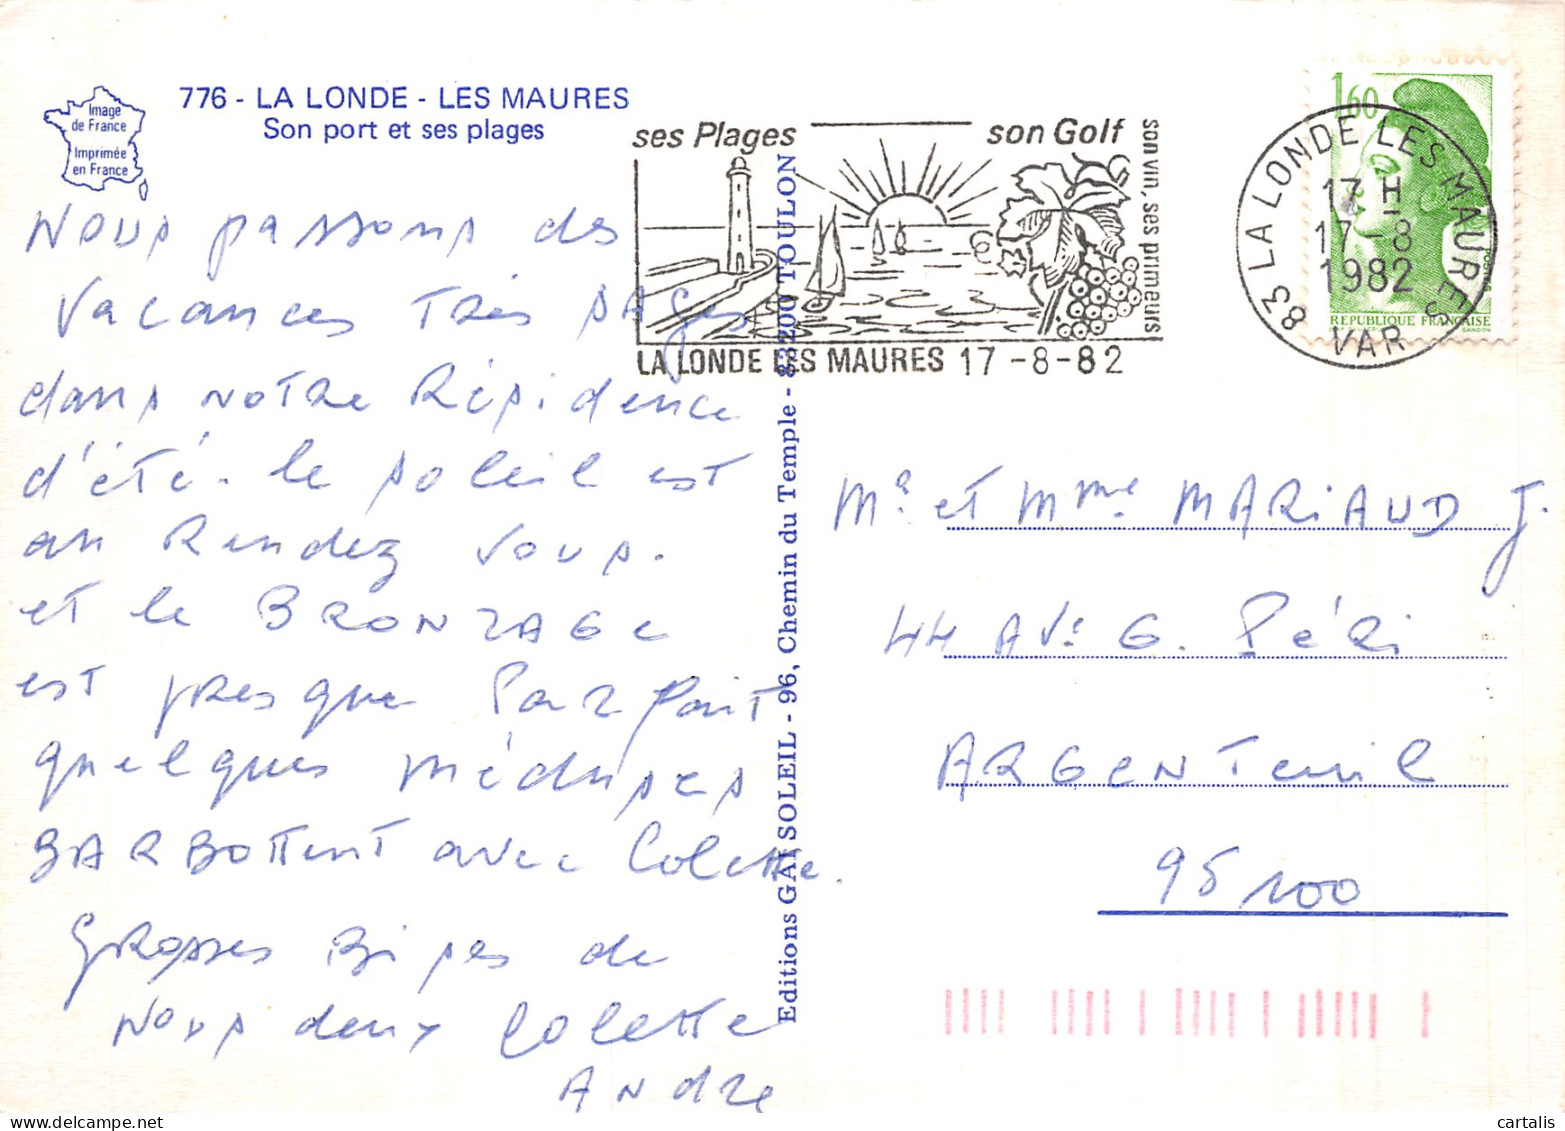 Image
de France
Imprimée
en France
776 - LA LONDE - LES MAURES
Son port et ses plages
Nous passons des
vacances très sages
dans notre Résidence
d'été. le soleil est
au Rendez vous.
et le BRONZAGE
est presque Parfait
quelques méduses
BARBOTTENT avec Colette.
Grosses Bises de
Nous deux Colette
Andre
Editions GAI SOLEIL - 96, Chemin du Temple - 83200 TOULON
ses Plages son Golf
son vin, ses primeurs
LA LONDE LES MAURES 17-8-82
1,60
REPUBLIQUE FRANÇAISE
83 LA LONDE LES MAURES
17 H
17-8
1982
VAR
Mr et Mme MARIAUD J.
44 AVe G. Péri
ARGENTEUIL
95100
cartalis